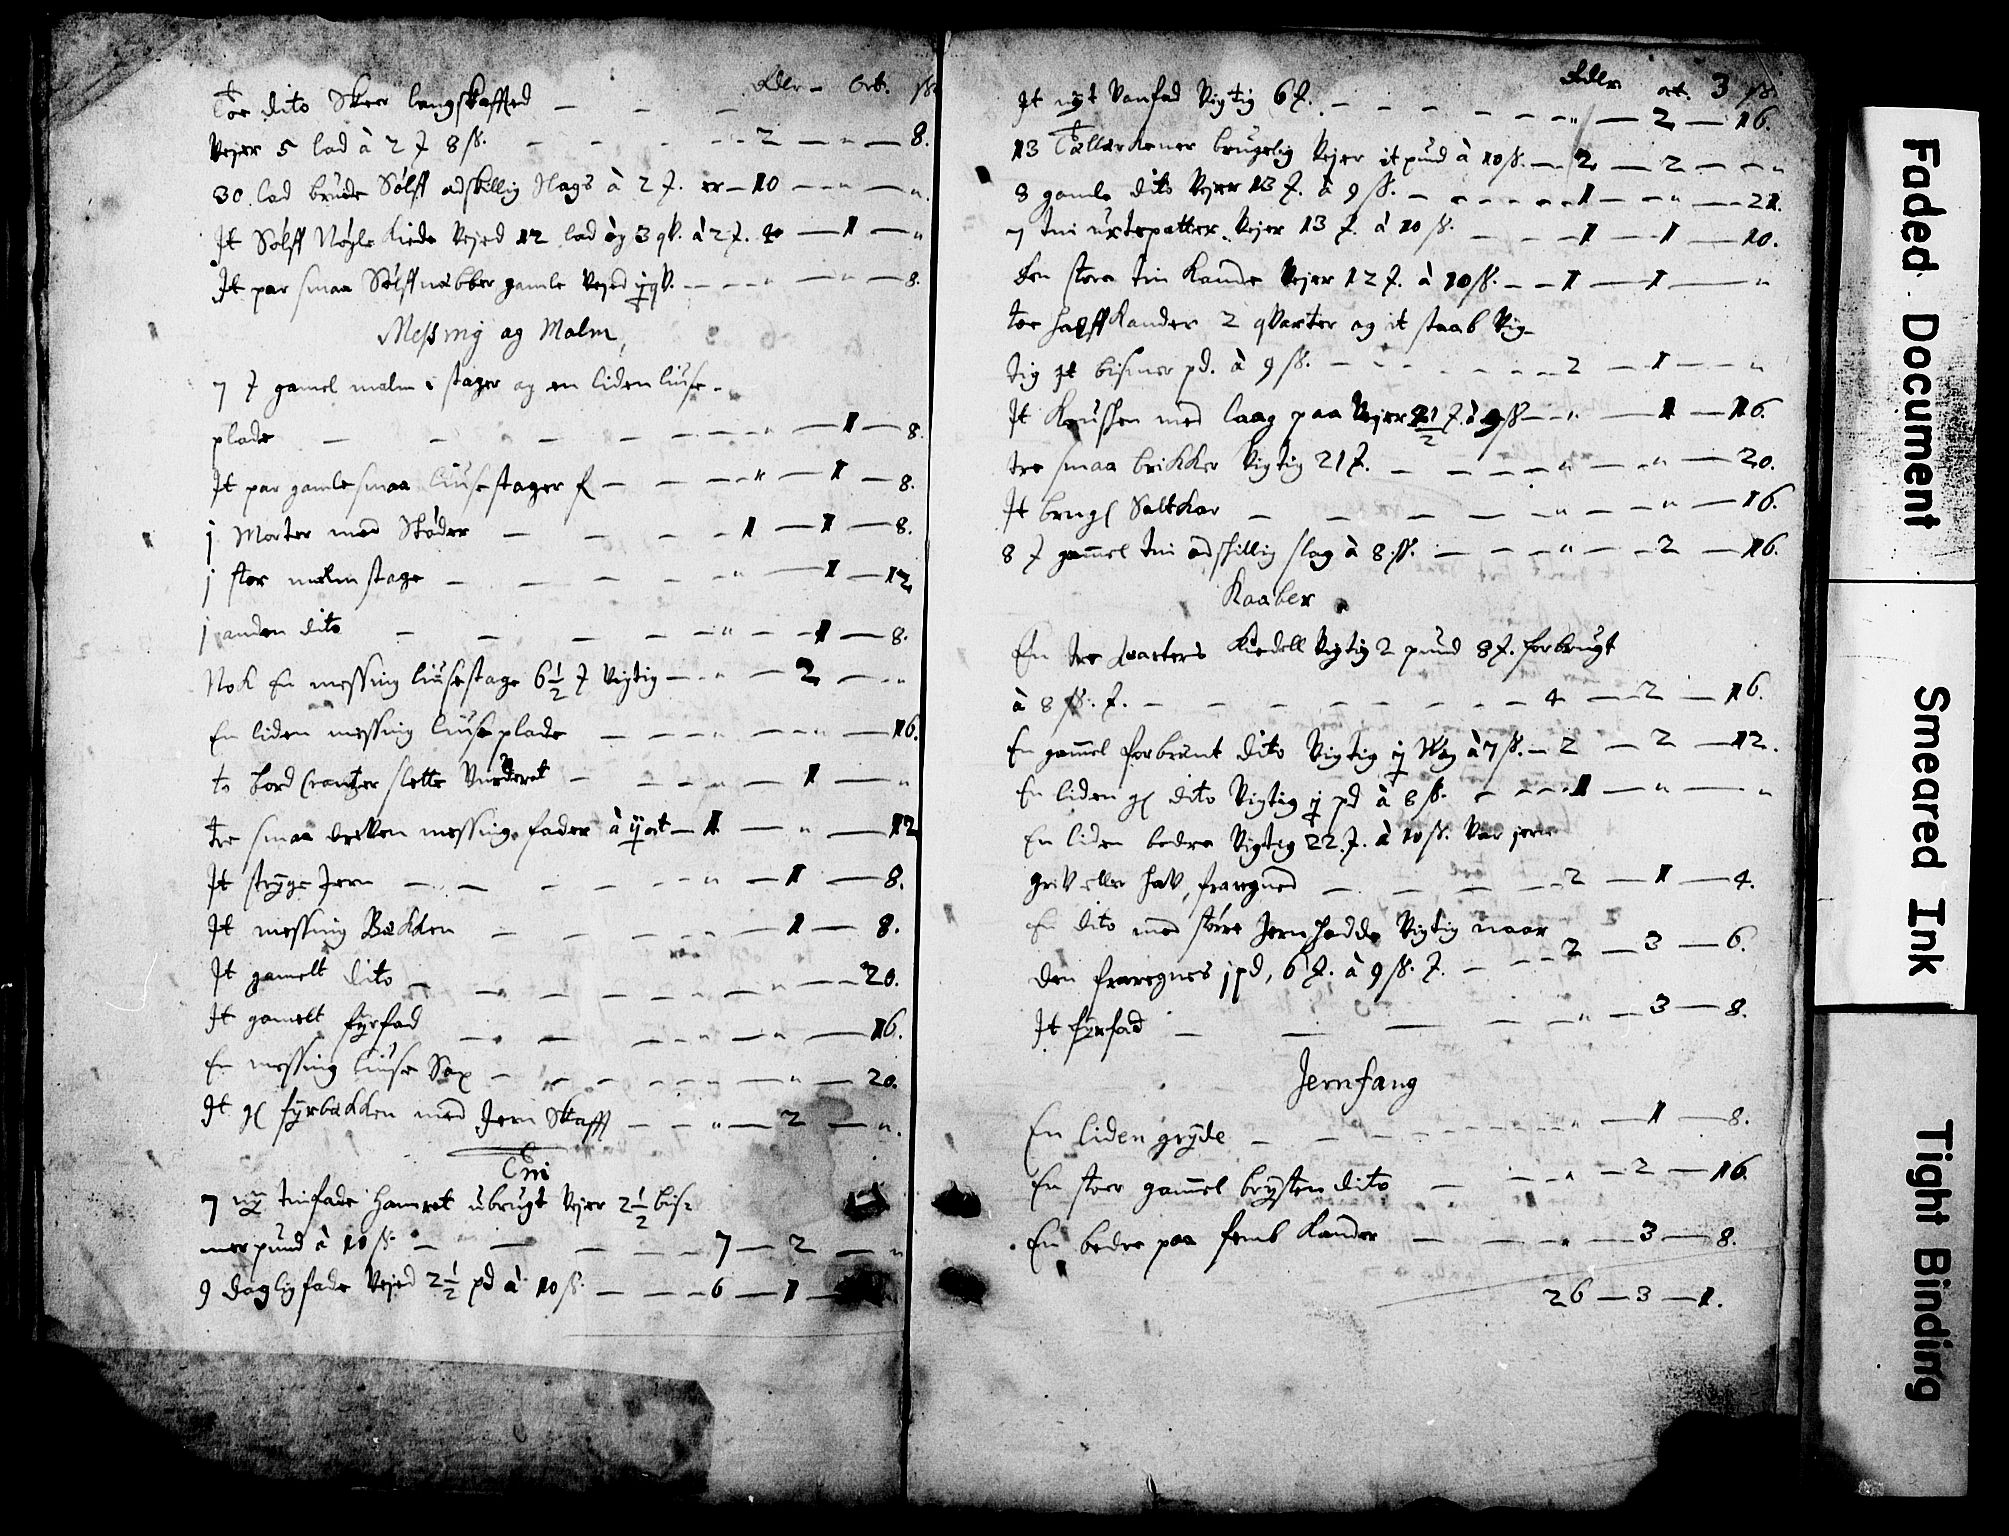 Rdlr – Ort. ß.
Toe dito Skeer langskaffted — — —
Vejer 5 lod à 2 ₰ 8 ß. — — — 2 — „ — 8.
30 lod brude Sølff adskillig slags à 2 ₰. er — 10 — „ — „
It Sølff Nøgle Kiede Vejed 12 lod og 3 qv. à 2 ₰. — 1 — „
It par smaa Sølffnebber gamle Vejed ij qv. — — „ — „ — 8.
Messing og Malm,
7 ₰ gamel malm i stager og en liden liuse-
plade — — — — „ — 1 — 8.
It par gamle smaa liusestager — — — „ — 1 — 8.
j Morter med Støder — — — 1 — 1 — 8.
j stor malm stage — — — „ — 1 — 12
j anden dito — — — — „ — 1 — 8.
Nok En messing liusestage 6 1/2 ₰ Vigtig — „ — 2 — „
En liden messing liuseplade — — „ — „ — 16.
to bord Crantzer slette Vurderet — — „ — 1 — „
tre smaa dreven messings fader à ij ort — 1 — „ — 12
It stryge Jern — — — — „ — 1 — 8.
It messing Bekken — — — „ — 1 — 8.
It gamelt dito — — — — „ — „ — 20.
It gamelt fyrfad — — — „ — „ — 16.
En messing liuse Sax — — — „ — „ — 20.
It gl fyrbekken med Jern Skafft — — „ — 2 — „.
Tin
7 ny tinfade hamret ubrugt Vejer 2 1/2 bis-
merpund à 10 ß. — — — 7 — 2 — „
9 daglig fade Vejed 2 1/2 pd à 10 ß. — — — 6 — 1 —
Rdlr. ort. 3 ß.
It nyt Vanfad Vigtig 6 ₰. — — — „ — 2 — 16.
13 Tallerkener brugelig Vejer it pund à 10 ß. — 2 — 2 — „
8 gamle dito Vejer 13 ₰. à 9 ß. — — — 1 — „ — 21.
7 tin urtepotter Vejer 13 ₰. à 10 ß. — — 1 — 1 — 10.
Een store tin Kande Vejer 12 ₰. à 10 ß. — — 1 — 1 — „
toe halff Kander 2 qvarter og it staab Vig-
tig it bismer pd. à 9 ß. — — — 2 — 1 — „
It Krussken med laag paa Vejer 1/2 ₰. à 9 ß — „ — 1 — 16.
tre smaa brikker Vigtig 21 ₰. — — — „ — „ — 20.
It brugl Saltkar — — — — „ — „ — 16.
8 ₰ gammel tin adskillig slag à 8 ß. — — „ — 2 — 16.
Kaaber
En tre qvarters Kiedell Vigtig 2 pund 8 ₰. forbrugt
à 8 ß. ₰. — — — — 4 — 2 — 16.
En gammel forbrent dito Vigtig ij à 7 ß. — 2 — 2 — 12.
En liden gl dito Vigtig j pd à 8 ß. — — 1 — „ — „
En liden bedre Vigtig 22 ₰. à 10 ß. Var jern
greV eller haV, fraregned — — — 2 — 1 — 4.
En dito med større Jern hadde Vigtig naar
den fraregnes j pd, 6 ₰. à 9 ß. ₰. — — 2 — 3 — 6.
It fyrfad — — — — „ — 3 — 8.
Jernfang
En liden gryde — — — „ — 1 — 8.
En stoer gammel brysten dito — — „ — 2 — 16.
En bedre paa femb Kander — — „ — 3 — 8.
26 — 3 — 1.
Faded Document
Smeared Ink
Tight Binding